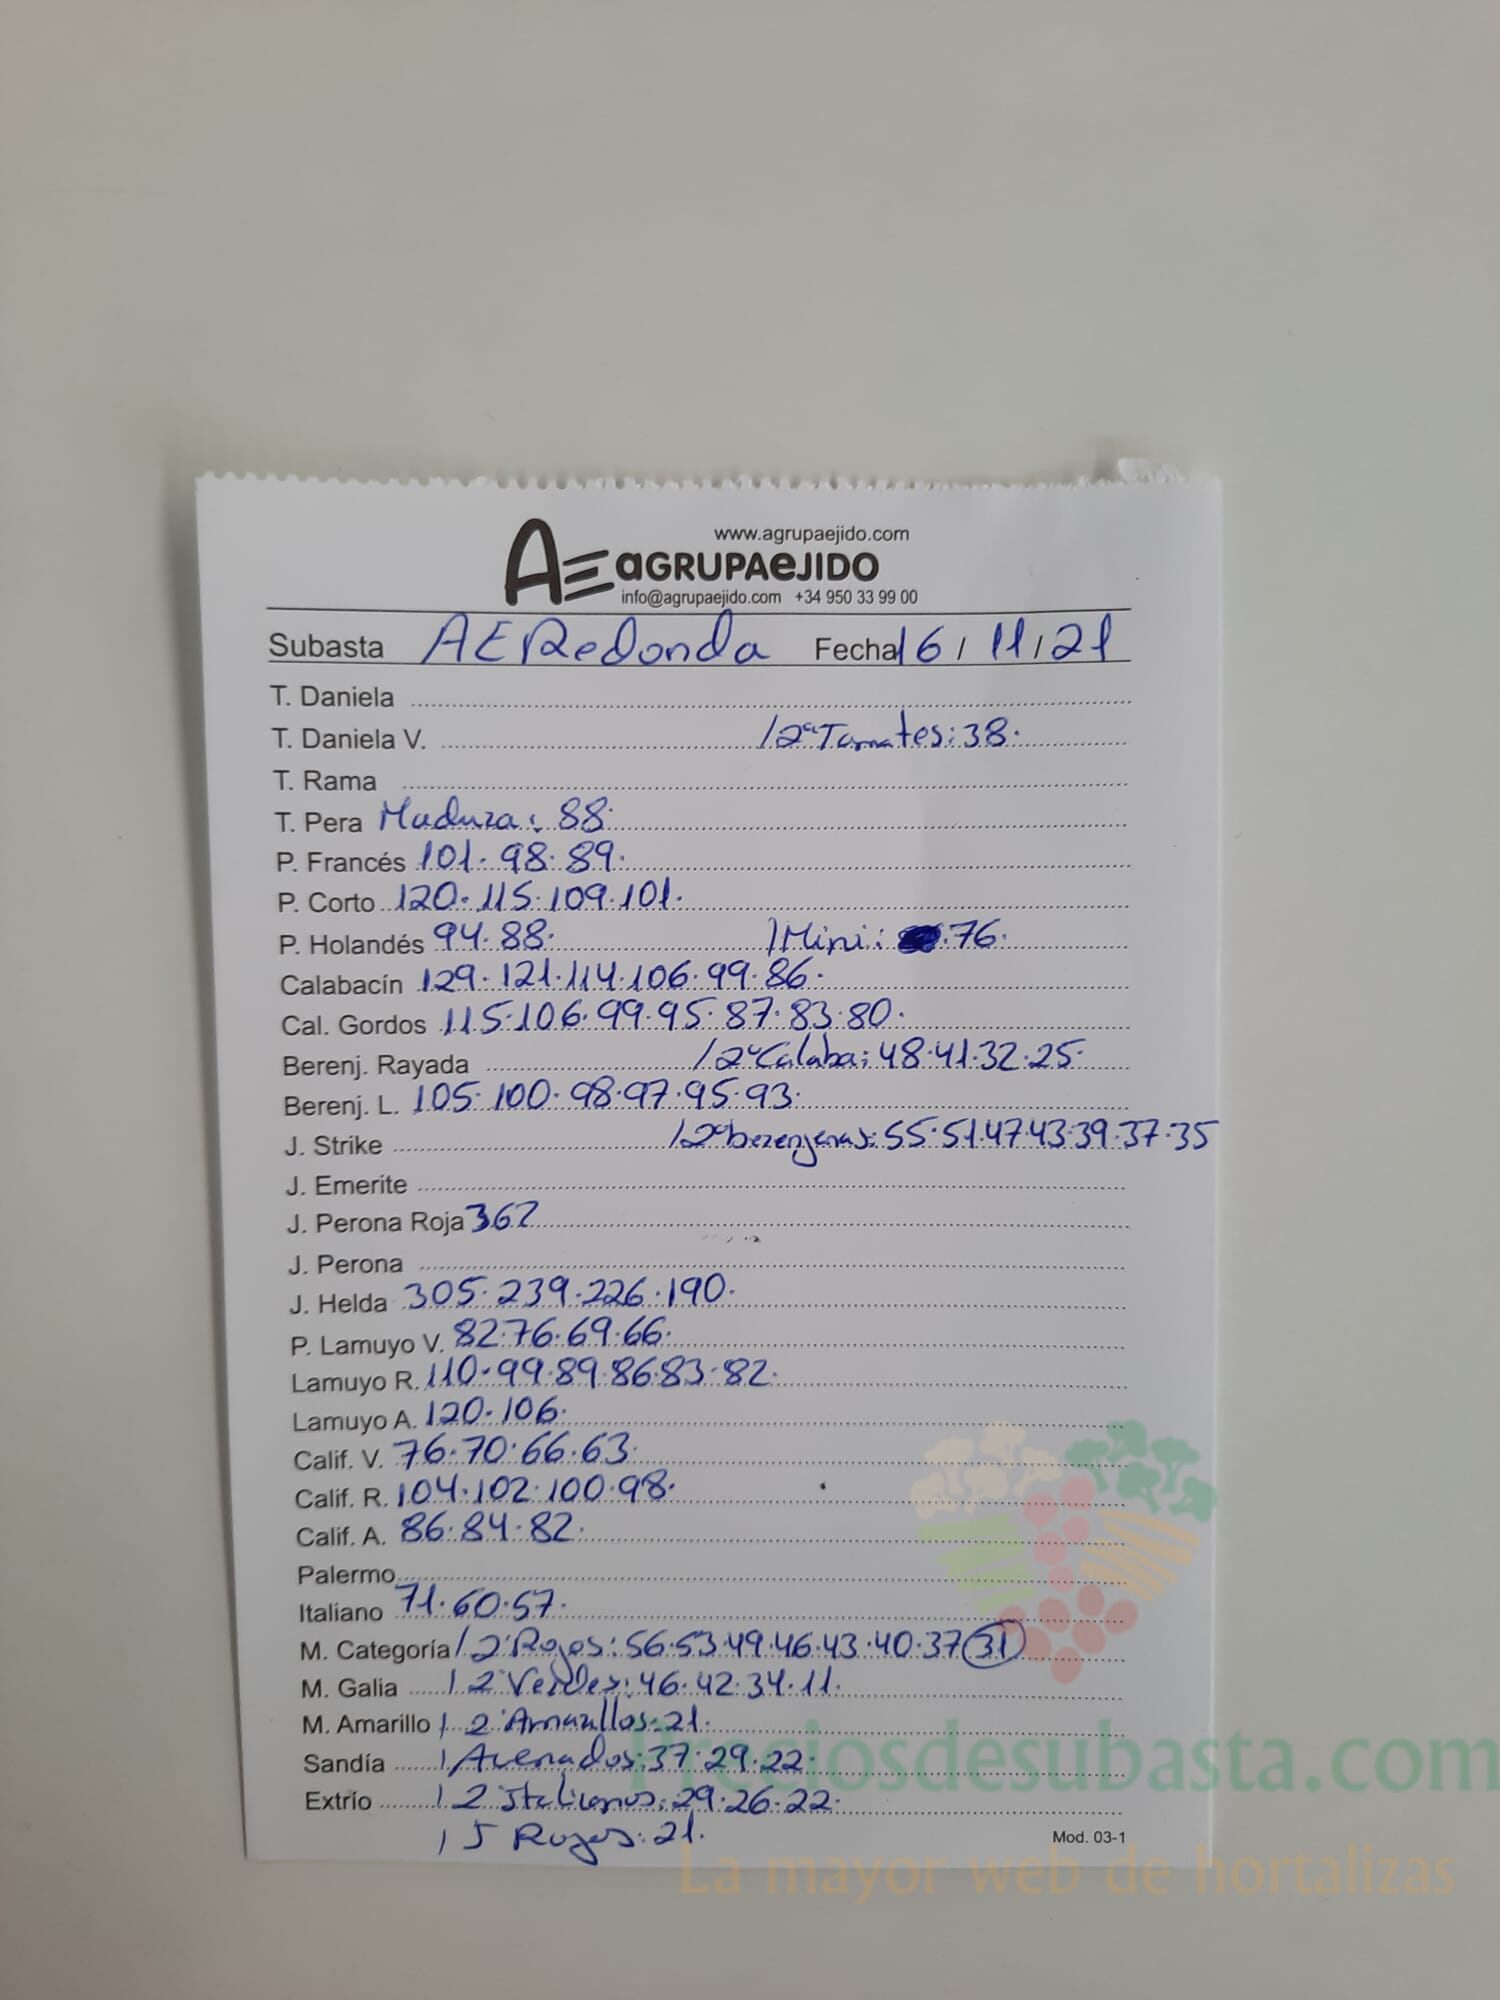 www.agrupaejido.com
AE aGRUPAeJIDO
info@agrupaejido.com +34 950 33 99 00
Subasta AE Redonda Fecha 16 / 11 / 21
T. Daniela
T. Daniela V. / 2ª Tomates: 38.
T. Rama
T. Pera Madura: 88.
P. Francés 101. 98. 89.
P. Corto 120. 115. 109. 101.
P. Holandés 94. 88. / Mini: 76.
Calabacín 129. 121. 114. 106. 99. 86.
Cal. Gordos 115. 106. 99. 95. 87. 83. 80.
Berenj. Rayada / 2ª Calaba: 48. 41. 32. 25.
Berenj. L. 105. 100. 98. 97. 95. 93.
J. Strike / 2ª berenjenas: 55. 51. 47. 43. 39. 37. 35
J. Emerite
J. Perona Roja 362
J. Perona
J. Helda 305. 239. 226. 190.
P. Lamuyo V. 82. 76. 69. 66.
Lamuyo R. 110. 99. 89. 86. 83. 82.
Lamuyo A. 120. 106.
Calif. V. 76. 70. 66. 63.
Calif. R. 104. 102. 100. 98.
Calif. A. 86. 84. 82.
Palermo
Italiano 71. 60. 57.
M. Categoría / 2ª Rojos: 56. 53. 49. 46. 43. 40. 37 31
M. Galia / 2ª Verdes: 46. 42. 34. 11.
M. Amarillo / 2ª Amarillos: 21.
Sandía / Asurados: 37. 29. 22.
Extrío / 2 Italianos: 29. 26. 22.
/ J Rojos: 21.
Mod. 03-1
Preciosdesubasta.com
La mayor web de hortalizas